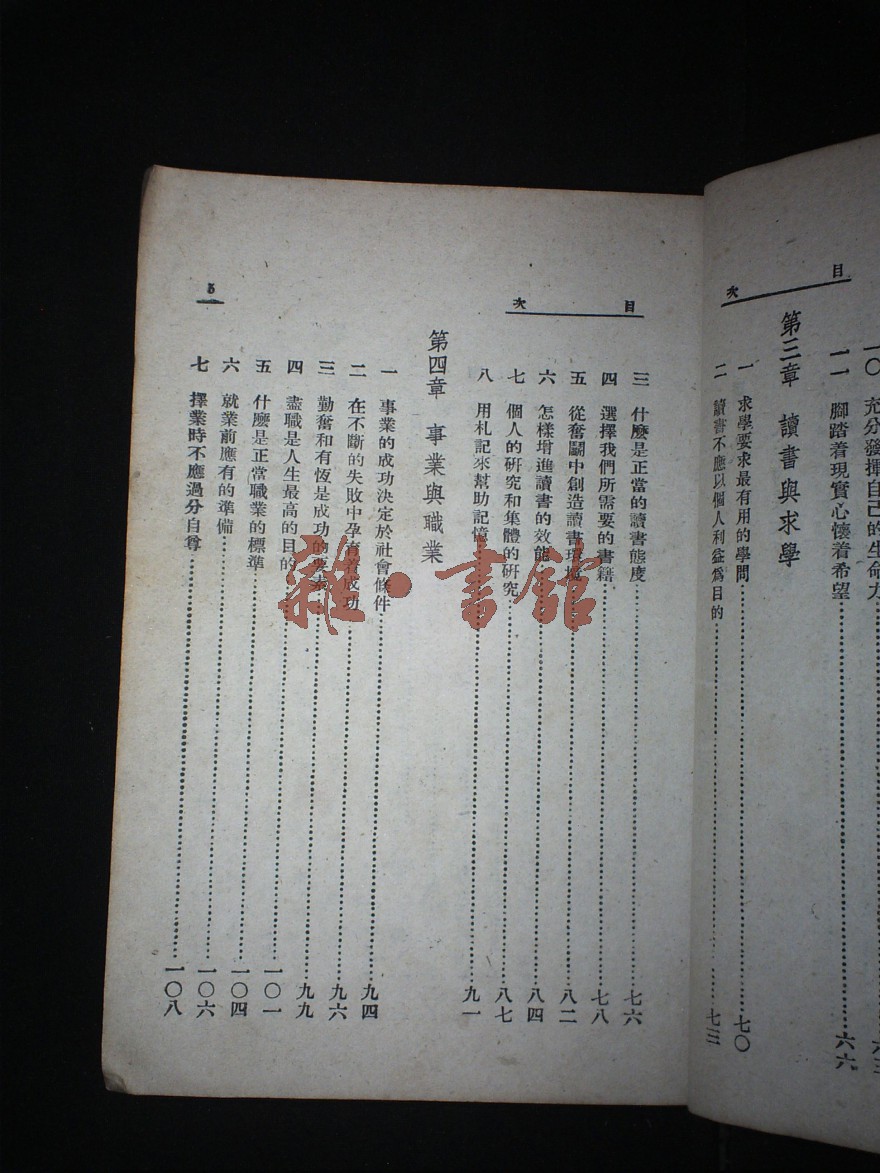 目次
一〇 充分發揮自己的生命力……六三
一一 脚踏着現實心懷着希望……六六
第三章 讀書與求學
一 求學要求最有用的學問……七〇
二 讀書不應以個人利益爲目的……七三
目次
三 什麼是正當的讀書態度……七六
四 選擇我們所需要的書籍……七八
五 從奮鬭中創造讀書環境……八二
六 怎樣增進讀書的效能……八四
七 個人的研究和集體的研究……八七
八 用札記來幫助記憶……九一
第四章 事業與職業
一 事業的成功決定於社會條件……九四
二 在不斷的失敗中孕育着成功……九六
三 勤奮和有恆是成功的要素……九九
四 盡職是人生最高的目的……九九
五 什麼是正常職業的標準……一〇一
六 就業前應有的準備……一〇四
七 擇業時不應過分自尊……一〇八
5
雜·書館